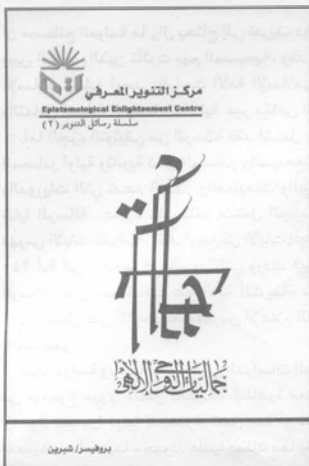 مركز التنوير المعرفي
Epistemological Enlightenment Centre
سلسلة رسائل التنوير (٢)
جماليات الوحي الالهي
بروفيسر/ شبرين